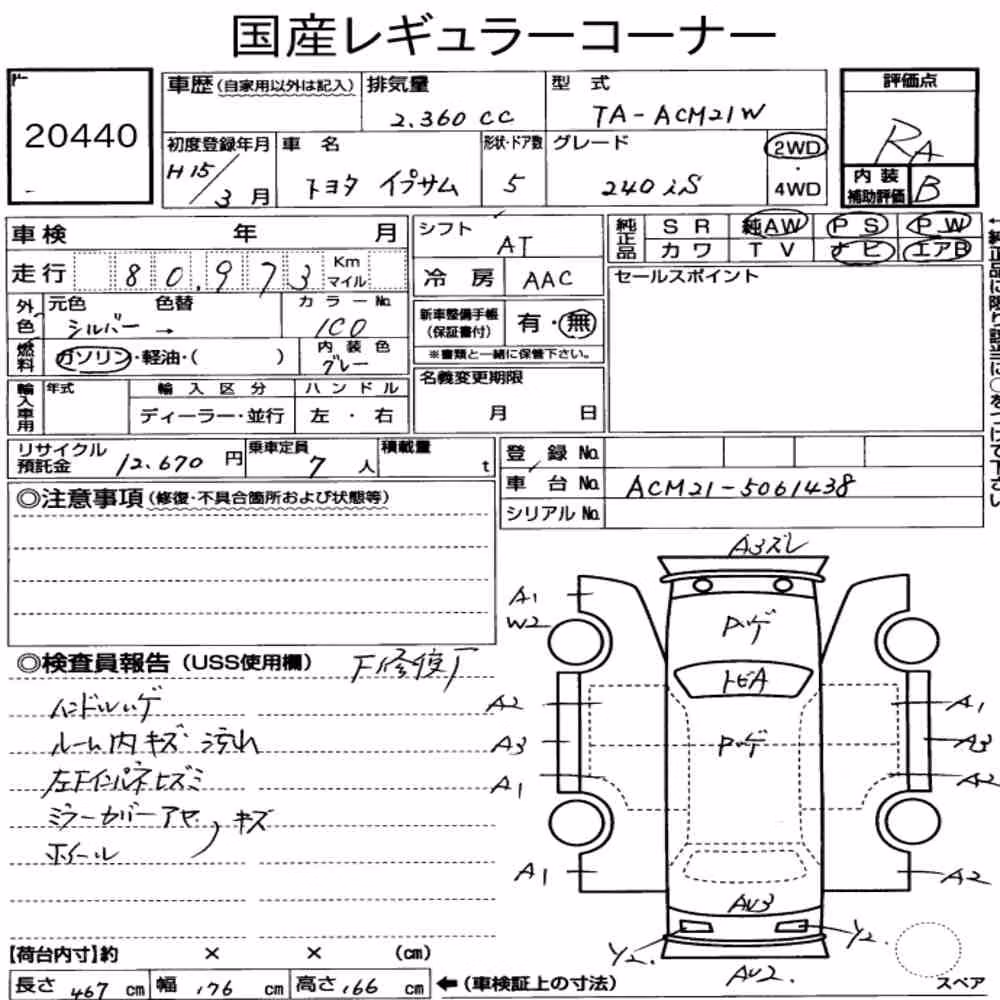 国産レギュラーコーナー
20440
車歴(自家用以外は記入)
排気量
2.360 CC
型 式
TA-ACM21W
評価点
RA
初度登録年月
H15/3月
車 名
トヨタ イプサム
形状・ドア数
5
グレード
240 iS
2WD
・
4WD
内 装
補助評価
B
車検 年 月
走行 80.973 Km
マイル
シフト
AT
冷 房 AAC
純正品 SR 純AW PS PW
カワ TV ナビ エアB
セールスポイント
外色 元色 色替
シルバー →
カラーNo.
1C0
新車整備手帳
(保証書付)
有・無
※書類と一緒に保管下さい。
燃料 ガソリン・軽油・( )
内装色
グレー
名義変更期限
月 日
輸入車用 年式
輸入区分
ディーラー・並行
ハンドル
左・右
リサイクル
預託金 12.670 円
乗車定員
7 人
積載量
t
登録No.
車台No. ACM21-5061438
シリアルNo.
←純正品に限り該当に○をつけて下さい
◎注意事項(修復・不具合箇所および状態等)
◎検査員報告(USS使用欄) F修復歴
ハンドルハゲ
ルーム内キズ 汚れ
左Fインパネヒズミ
ミラーカバーアヤ、キズ
ホイール
A3ズレ
A1
W2
P.ハゲ
トビA
A2
A1
P.ハゲ
A3
A3
A1
A2
A1
A2
AU3
Y2.
Y2.
AU2.
スペア
【荷台内寸】約 × × (cm)
長さ 467 cm 幅 176 cm 高さ 166 cm ←(車検証上の寸法)